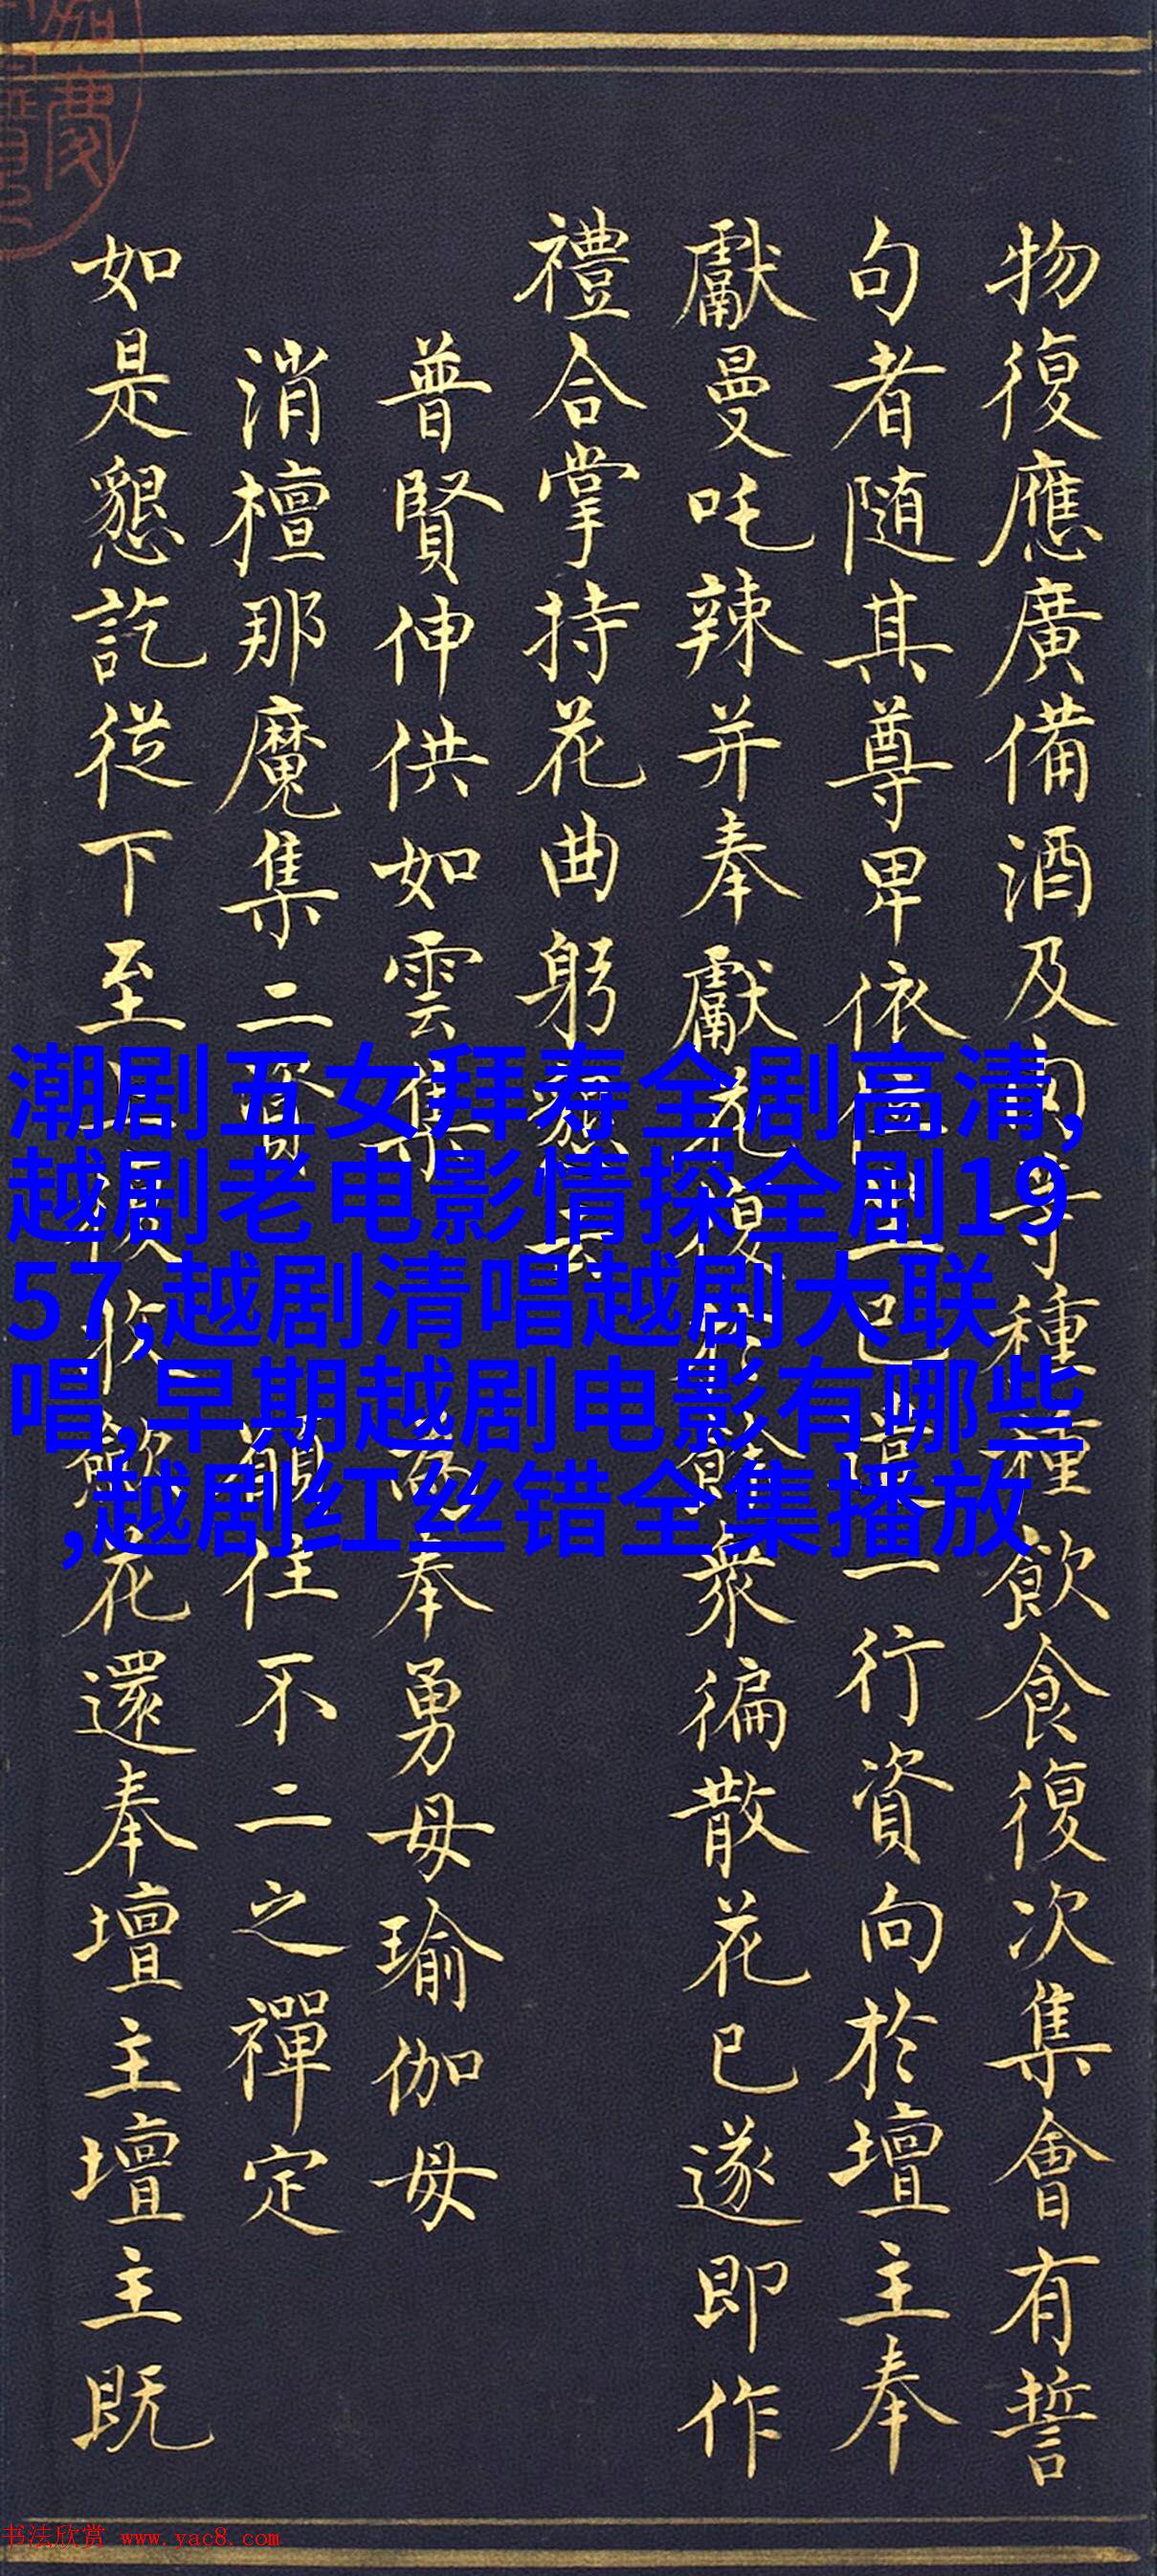 物復應廣備酒及肉等種種飲食復次集會有誓
句者随其尊卑依位一行資向於壇主奉
獻曼吒辣并奉獻花衆徧散花已遂即作
禮合掌持花曲躬
普賢伸供如雲集奉勇母瑜伽母
消檀那魔集二資願住不二之禪定
如是懇訖從下至花還奉壇主壇主既
潮剧五女拜寿全剧高清,
越剧老电影情探全剧19
57,越剧清唱越剧大联
唱,早期越剧电影有哪些
,越剧红丝错全集播放
书法欣赏 www.yac8.com